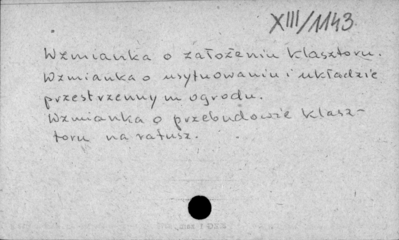 XIII/1143
Wzmianka o założeniu klasztoru.
Wzmianka o usytuowaniu i układzie
przestrzennym ogrodu.
Wzmianka o przebudowie klasz-
toru na ratusz.